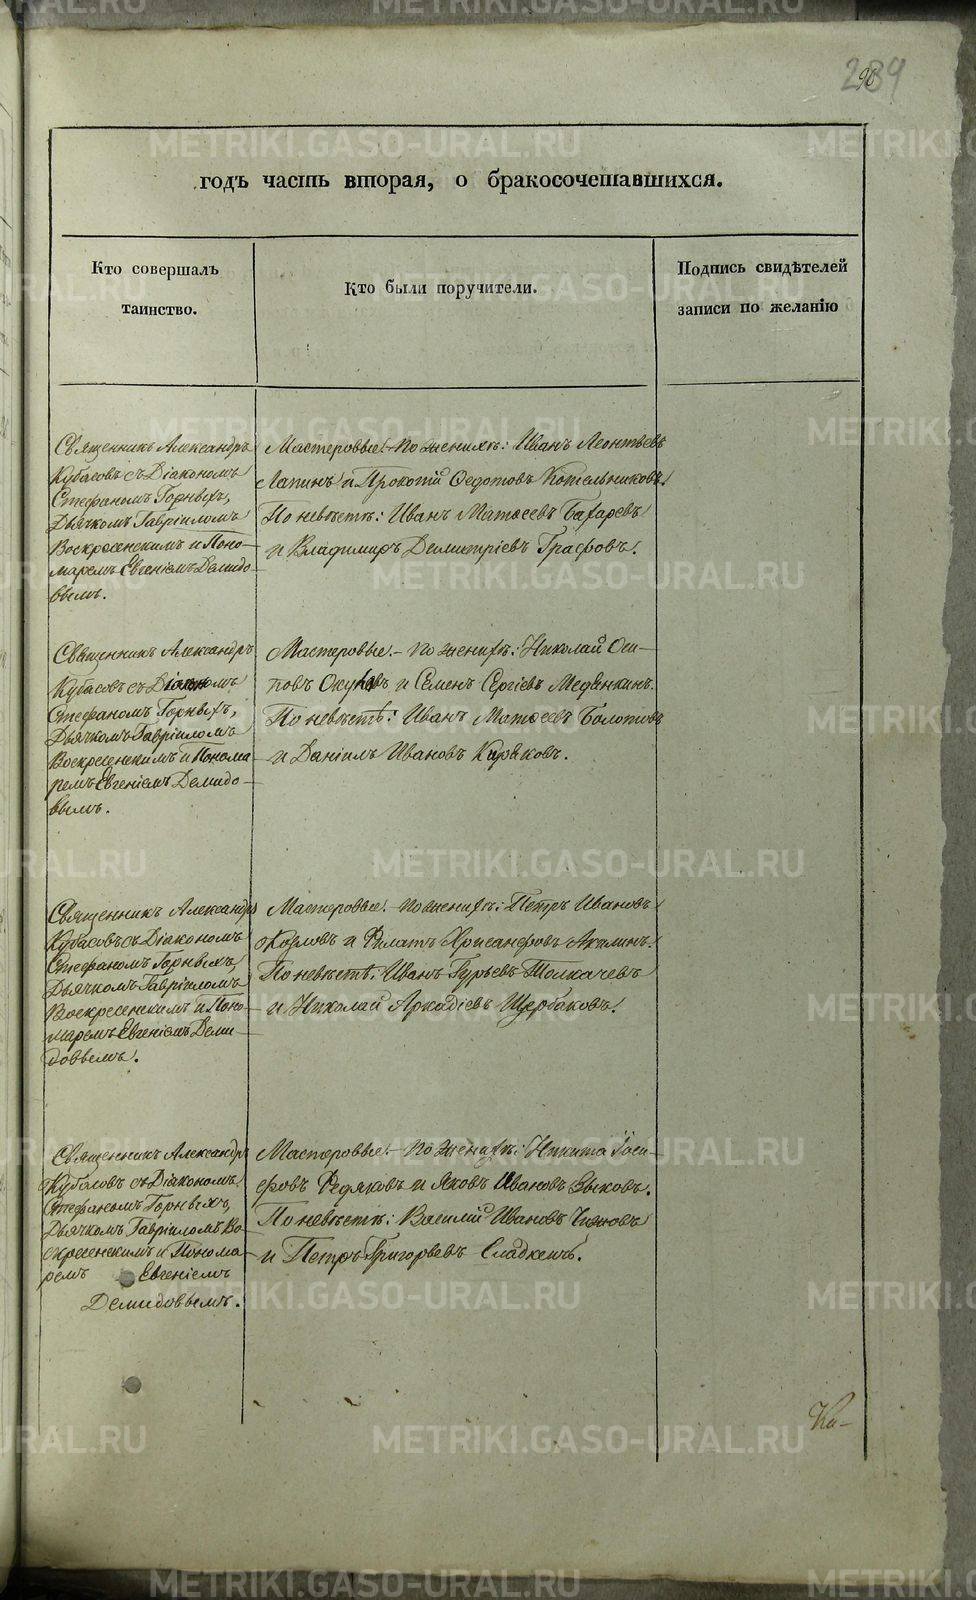 289
90
годъ часть вторая, о бракосочетавшихся.
Кто совершалъ
таинство.
Кто были поручители.
Подпись свидѣтелей
записи по желанію
Священникъ Александръ
Кубасовъ съ Діакономъ
Стефаномъ Горныхъ,
Дьячкомъ Гавріиломъ
Воскресенскимъ и Поно-
маремъ Евгеніемъ Демидо-
вымъ.
Мастеровые. - По женихѣ: Иванъ Леонтьевъ
Лапинъ и Прокопій Ѳедотовъ Котельниковъ.
По невѣстѣ: Иванъ Матвеевъ Бахаревъ
и Владимиръ Дмитріевъ Графовъ.
Священникъ Александръ
Кубасовъ съ Діакономъ
Стефаномъ Горныхъ,
Дьячкомъ Гавріиломъ
Воскресенскимъ и Понома-
ремъ Евгеніемъ Демидо-
вымъ.
Мастеровые. - По женихѣ: Николай Оси-
повъ и Семенъ Сергіевъ Медянкинъ.
По невѣстѣ: Иванъ Матвеевъ Болотовъ
и Даніилъ Ивановъ
Священникъ Александръ
Кубасовъ съ Діакономъ
Стефаномъ Горныхъ,
Дьячкомъ Гавріиломъ
Воскресенскимъ и Поно-
маремъ Евгеніемъ Деми-
довымъ.
Мастеровые. - По женихѣ: Петръ Ивановъ
Козловъ и Филатъ Хрисанфовъ Акилинъ.
По невѣстѣ: Иванъ Гурьевъ Толкачевъ
и Николай Аркадіевъ Щербаковъ.
Священникъ Александръ
Кубасовъ съ Діакономъ
Стефаномъ Горныхъ,
Дьячкомъ Гавріиломъ Во-
скресенскимъ и Понома-
ремъ Евгеніемъ
Демидовымъ.
Мастеровые. - По женихѣ: Никита Іоси-
фовъ Редяковъ и Яковъ Ивановъ Зыковъ.
По невѣстѣ: Василій Ивановъ
и Петръ Григорьевъ
METRIKI.GASO-URAL.RU